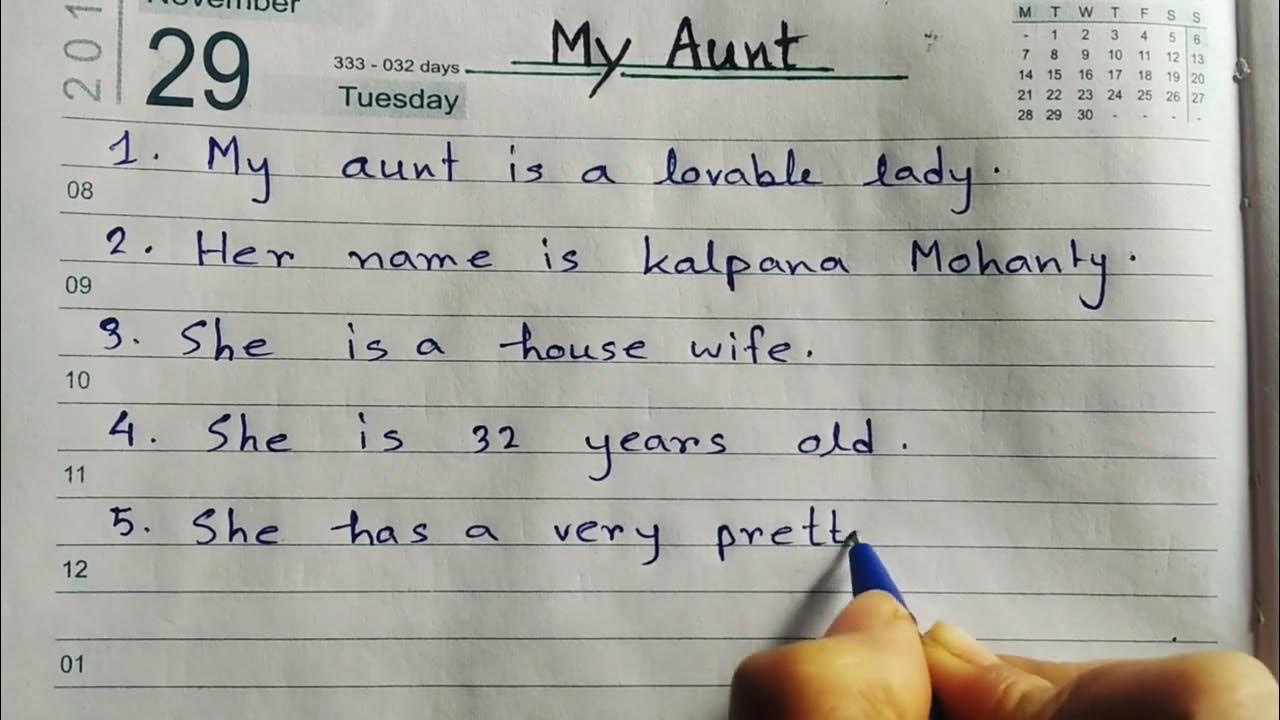 201
November
29
333 - 032 days
Tuesday
My Aunt
M T W T F S S
- 1 2 3 4 5 6
7 8 9 10 11 12 13
14 15 16 17 18 19 20
21 22 23 24 25 26 27
28 29 30 - - - -
1. My aunt is a lovable lady.
08
2. Her name is kalpana Mohanty.
09
3. She is a house wife.
10
4. She is 32 years old.
11
5. She has a very prett
12
01